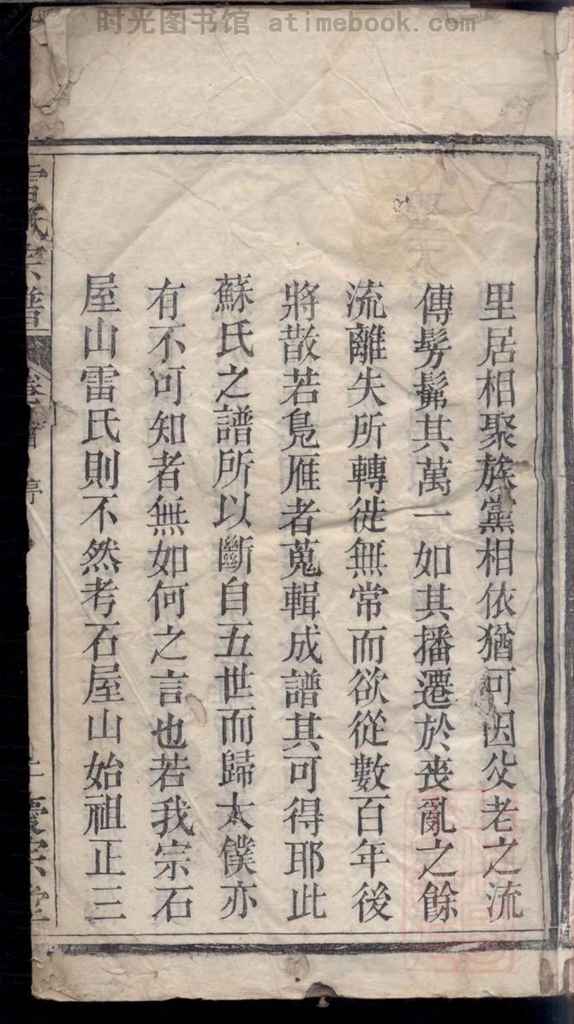 时光图书馆 atimebook.com
里居相聚族黨相依猶可因父老之流
傳髣髴其萬一如其播遷於喪亂之餘
流離失所轉徙無常而欲從數百年後
將散若鳧雁者蒐輯成譜其可得耶此
蘇氏之譜所以斷自五世而歸太僕亦
有不可知者無如何之言也若我宗石
屋山雷氏則不然考石屋山始祖正三
雷氏宗譜